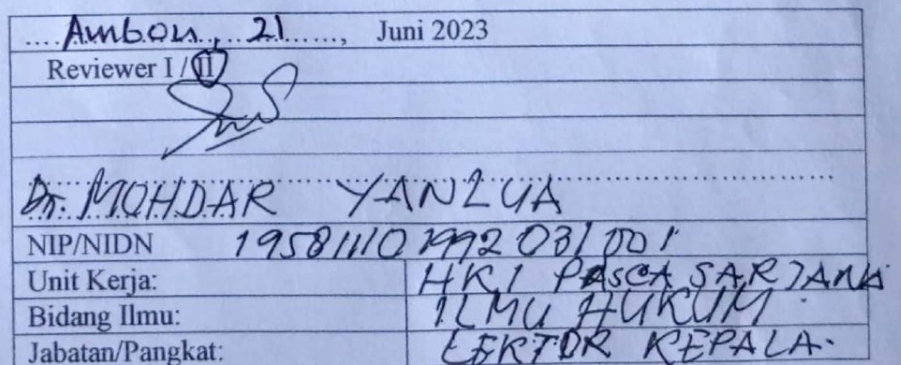 ....Ambon, 21......, Juni 2023
Reviewer I / II
Dr. MOHDAR YANLUA
NIP/NIDN 19581110 1992 031 001
Unit Kerja: HKI PASCA SARJANA
Bidang Ilmu: ILMU HUKUM.
Jabatan/Pangkat: LEKTOR KEPALA.